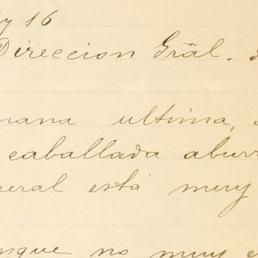 y 16
Direccion Gräl.
mana ultima,
caballada abur
eral está muy
nque no muy